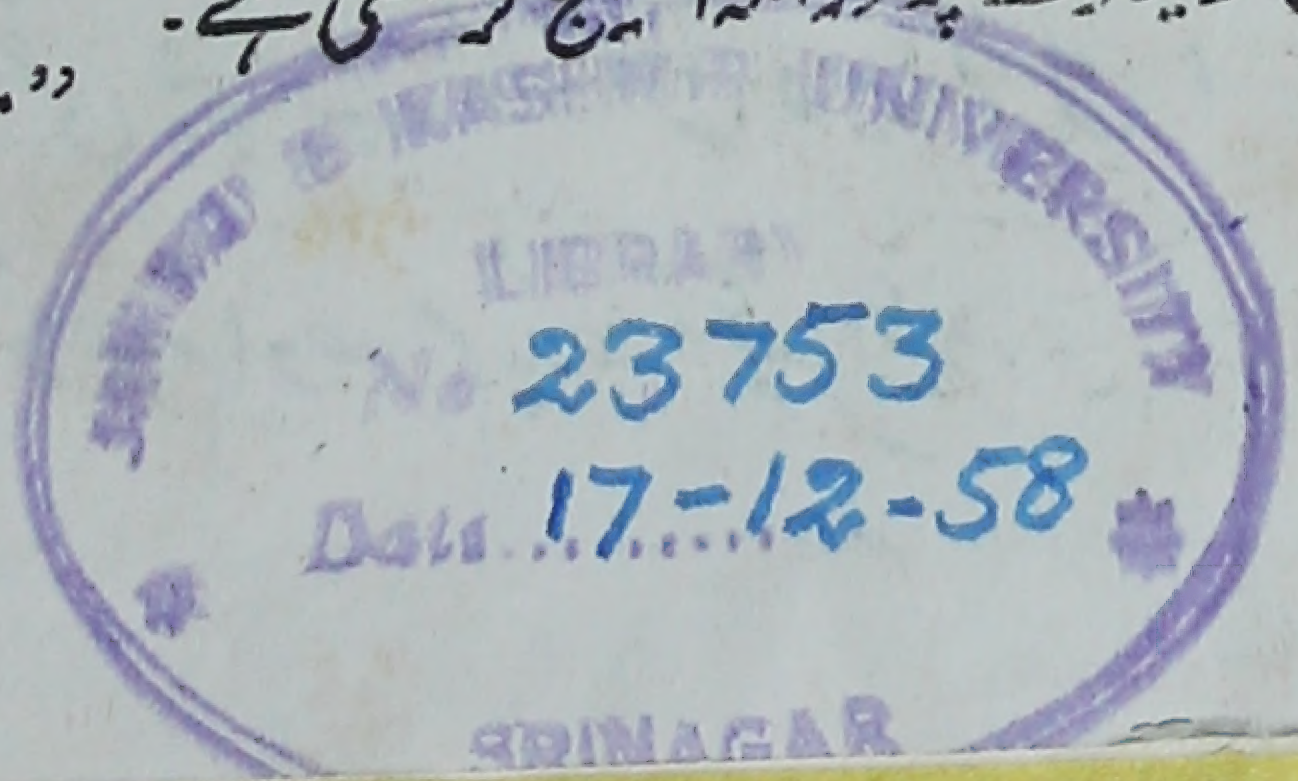 کی ہے۔
& KASHMIR UNIVERSITY
LIBRARY
No 23753
Date 17-12-58
SRINAGAR